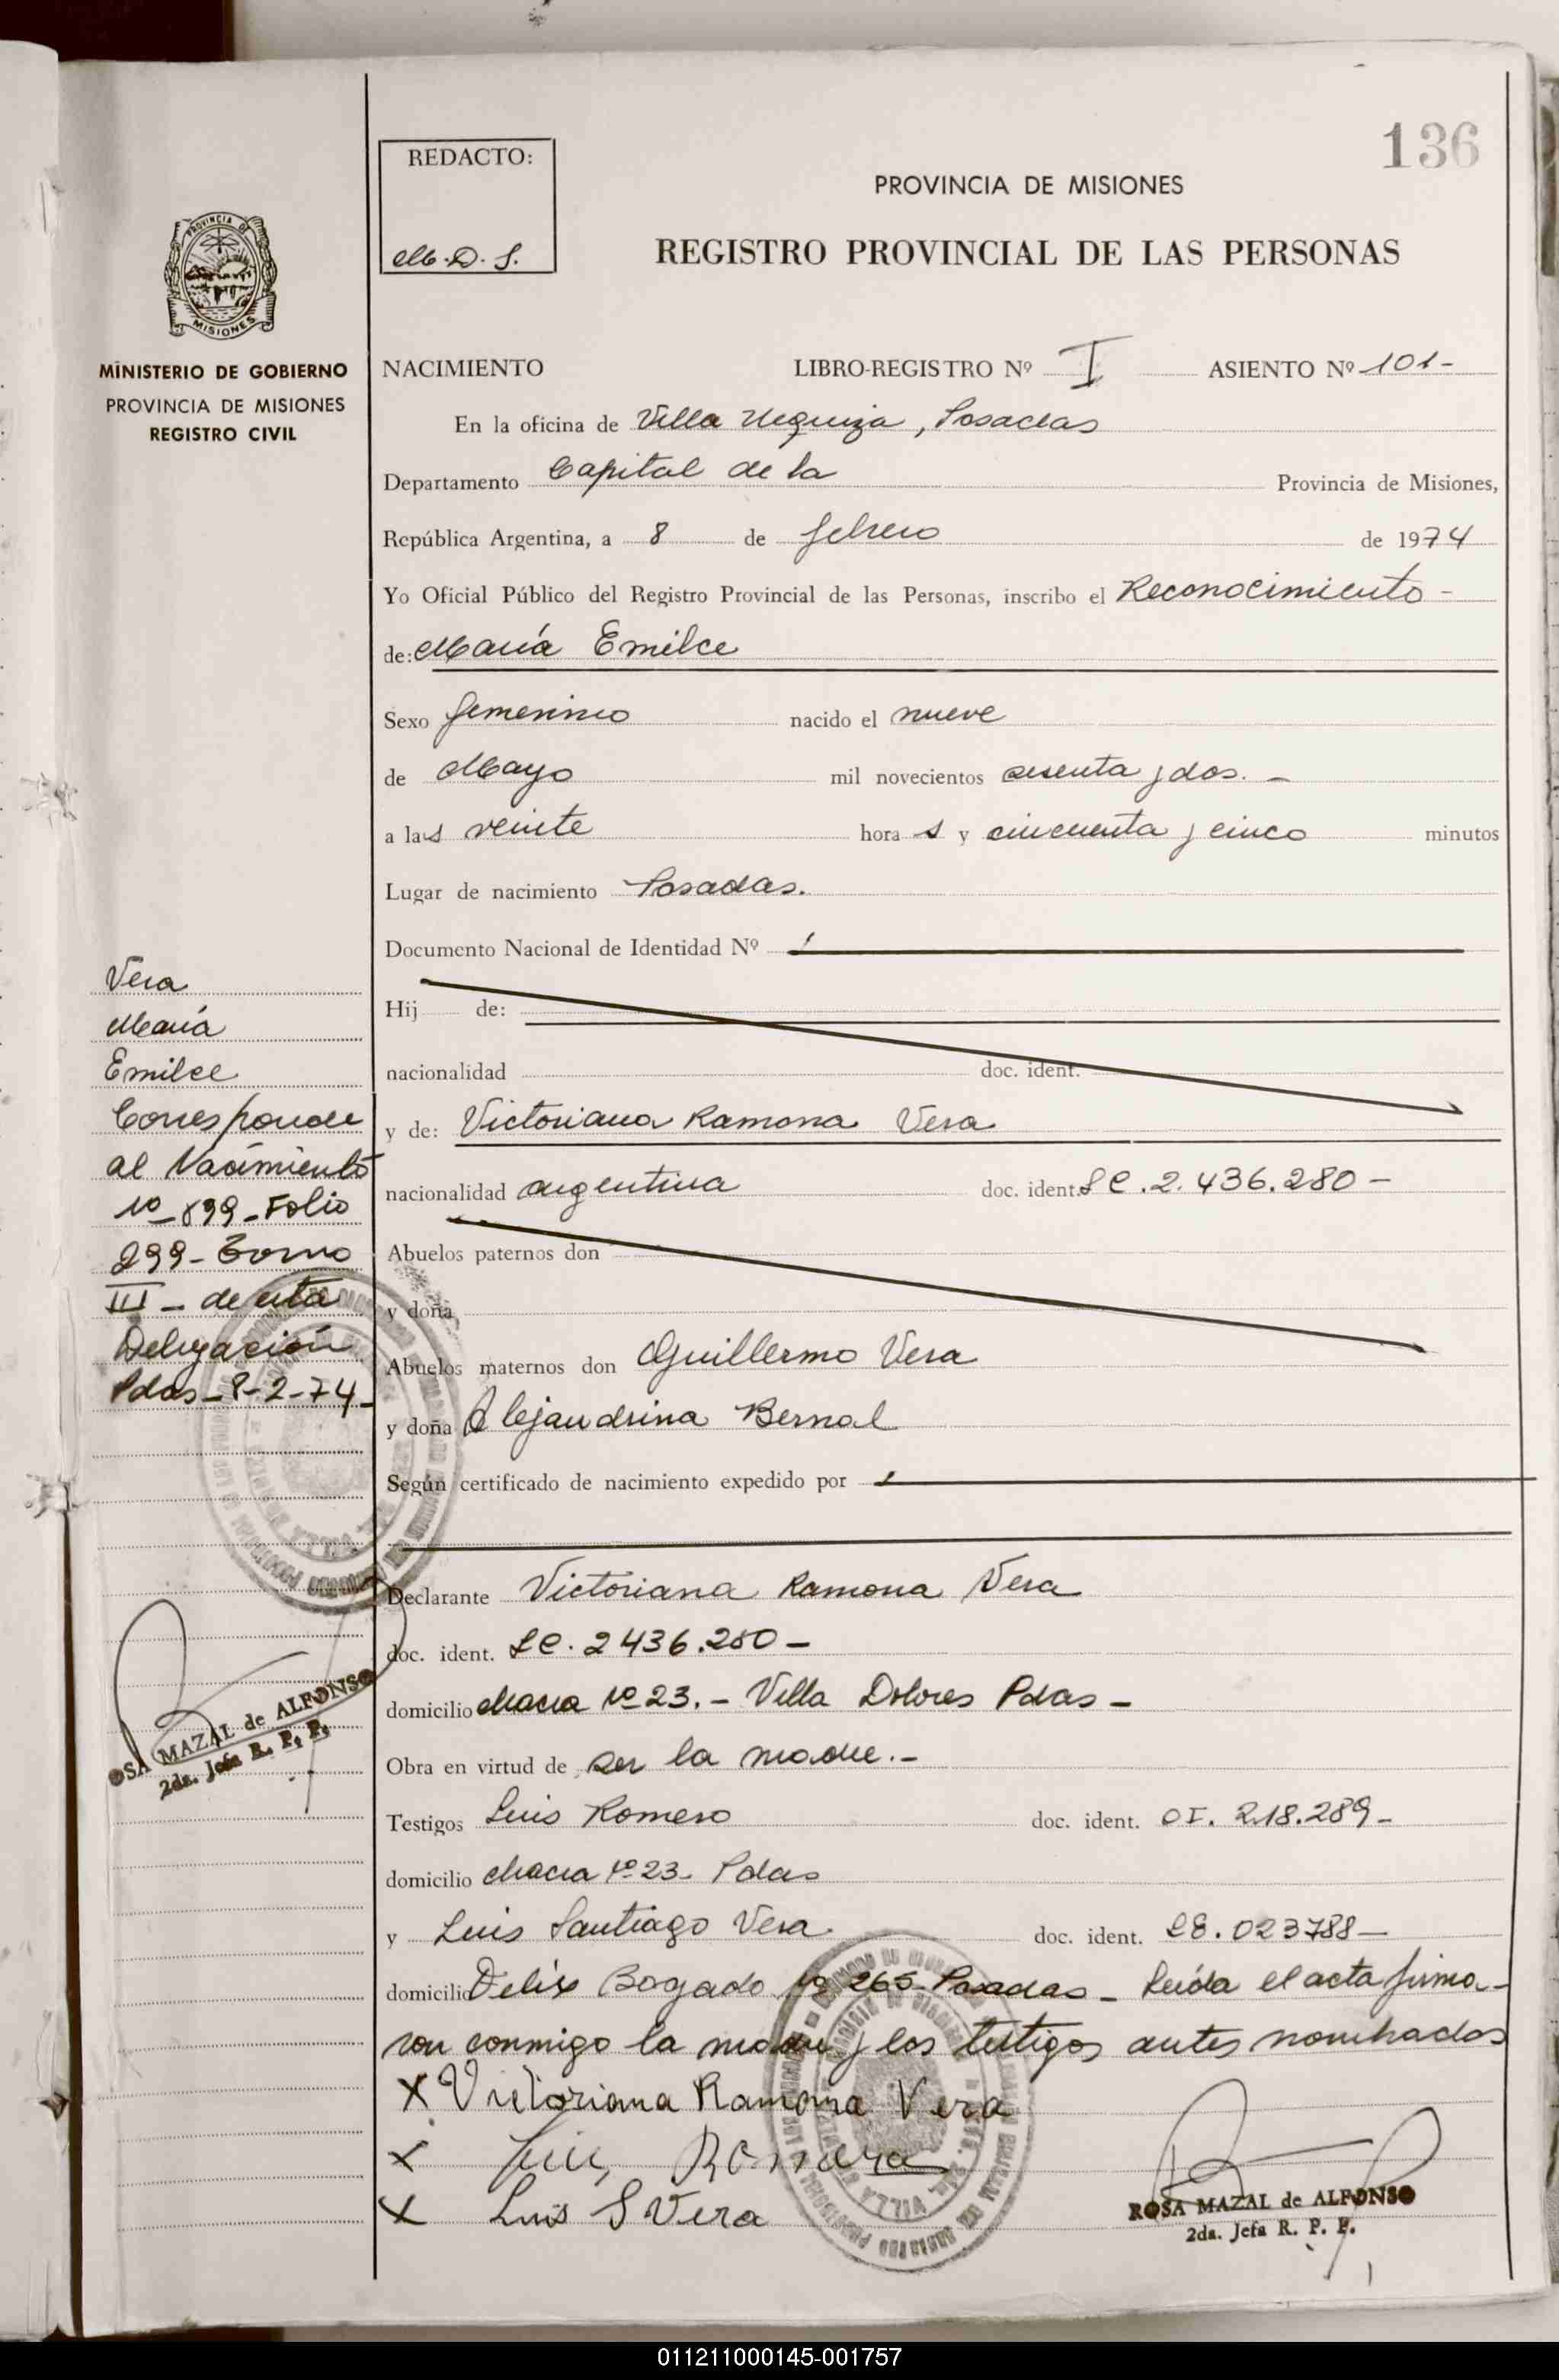 136
REDACTO:
M. D. S.
PROVINCIA DE MISIONES
REGISTRO PROVINCIAL DE LAS PERSONAS
PROVINCIA DE
MISIONES
MINISTERIO DE GOBIERNO
PROVINCIA DE MISIONES
REGISTRO CIVIL
NACIMIENTO LIBRO-REGISTRO Nº I ASIENTO Nº 101-
En la oficina de Villa Urquiza, Posadas
Departamento Capital de la Provincia de Misiones,
República Argentina, a 8 de febrero de 1974
Yo Oficial Público del Registro Provincial de las Personas, inscribo el Reconocimiento -
de: María Emilce
Sexo femenino nacido el nueve
de Mayo mil novecientos sesenta y dos. -
a las veinte hora s y cincuenta y cinco minutos
Lugar de nacimiento Posadas.
Documento Nacional de Identidad Nº
Hij de:
nacionalidad doc. ident.
y de: Victoriana Ramona Vera
nacionalidad argentina doc. ident. LC. 2.436.280 -
Abuelos paternos don
y doña
Abuelos maternos don Guillermo Vera
y doña Alejandrina Bernal
Según certificado de nacimiento expedido por
Declarante Victoriana Ramona Vera
doc. ident. LC. 2436.280 -
domicilio chacra Nº 23. - Villa Dolores Pdas -
Obra en virtud de ser la madre. -
Testigos Luis Romero doc. ident. OI. 218.289 -
domicilio chacra Nº 23. Pdas
y Luis Santiago Vera doc. ident. 28.023788 -
domicilio Bogado Nº 265 - Posadas - Leída el acta firma-
ron conmigo la madre y los testigos antes nombrados
X Victoriana Ramona Vera
X Luis Romero
X Luis S Vera
ROSA MAZAL de ALFONSO
2da. Jefa R. P. P.
Vera
María
Emilce
Corresponde
al Nacimiento
Nº 899 - Folio
299 - Tomo
III - de esta
Delegación
Pdas - 8-2-74 -
OSA MAZAL de ALFONSO
2da. Jefa R. P. P.
011211000145-001757